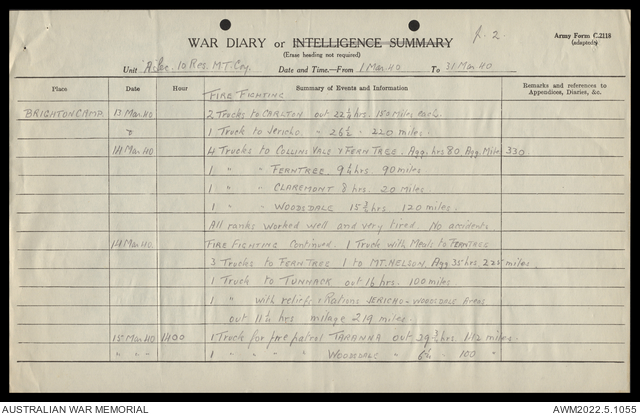 p. 2.
Army Form C.2118
(adapted)
WAR DIARY or INTELLIGENCE SUMMARY
(Erase heading not required)
Unit 10 Res. M.T. Coy. Date and Time.—From 1 Mar 40 To 31 Mar 40
Place Date Hour Summary of Events and Information Remarks and references to Appendices, Diaries, &c.
FIRE FIGHTING
BRIGHTON CAMP 13 Mar 40 2 Trucks to CARLTON out 22 1/2 hrs. 150 miles each.
" 1 Truck to Jericho. " 26 1/2 - 220 miles.
14 Mar 40 4 Trucks to COLLINS VALE & FERN TREE. Agg. hrs 80 Agg. Miles 330
1 " " FERNTREE 9 1/4 hrs 90 miles
1 " " CLAREMONT 8 hrs. 20 miles.
1 " " WOODSDALE 15 3/4 hrs. 120 miles.
All ranks worked well and very tired. No accidents
14 Mar 40. FIRE FIGHTING Continued. 1 Truck with Meals to FERNTREE
3 Trucks to FERN TREE 1 to MT. NELSON. Agg 35 hrs. 225 miles
1 Truck to TUNNACK out 16 hrs. 100 miles
1 " with reliefs & Rations JERICHO & WOODSDALE Areas
out 11 1/2 hrs milage 219 miles.
15 Mar 40 1400 1 Truck for fire patrol TARANNA out 39 3/4 hrs. 142 miles.
" " " " 1 " " " WOODSDALE " 6 1/2 - 100 "
AUSTRALIAN WAR MEMORIAL
AWM2022.5.1055